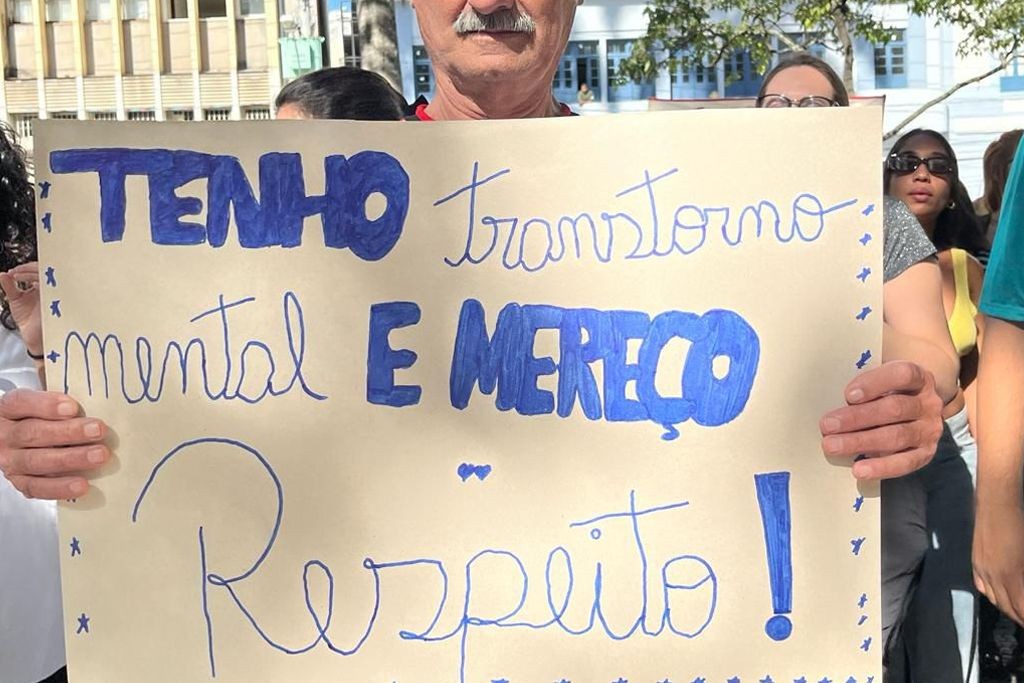 TENHO transtorno
mental E MEREÇO
Respeito!